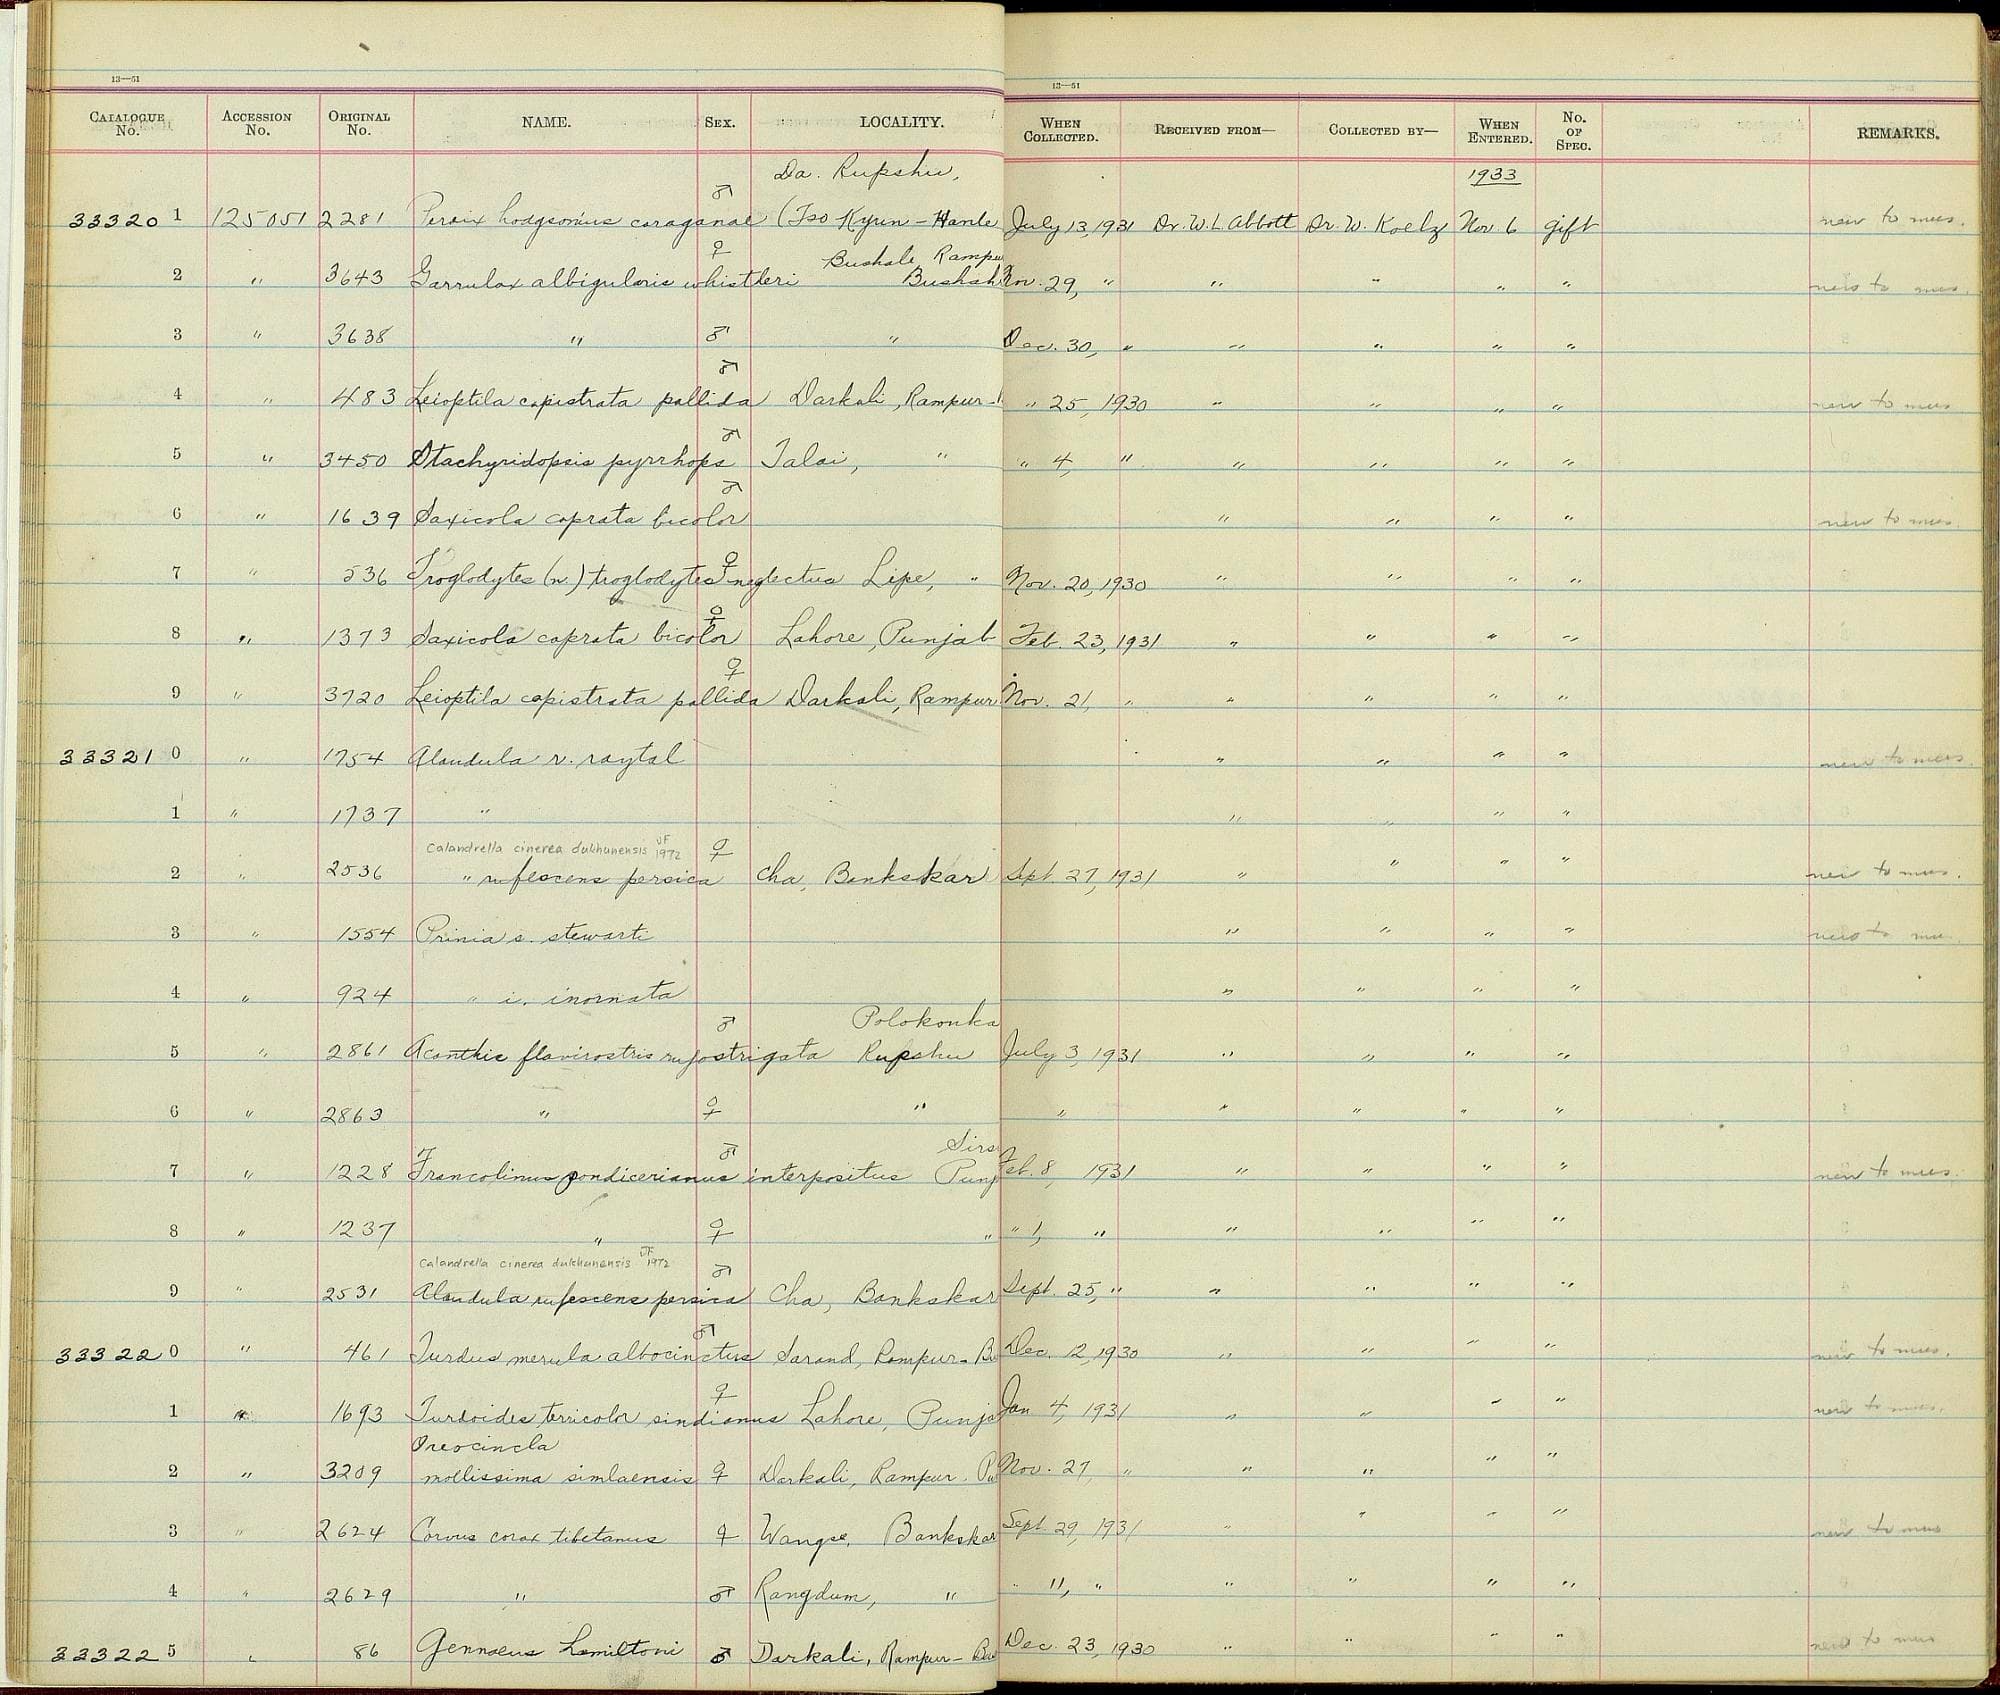 13—51
13—51
CATALOGUE No. ACCESSION No. ORIGINAL No. NAME. SEX. LOCALITY. WHEN COLLECTED. RECEIVED FROM— COLLECTED BY— WHEN ENTERED. No. OF SPEC. REMARKS.
Da. Rupshu, 1933
333201 125051 2281 Perdix hodgsonius caraganae ♂ (Tso Kyun - Hanle July 13, 1931 Dr. W. L. Abbott Dr. W. Koelz Nov. 6 gift new to mus.
Bushale, Rampur
2 " 3643 Garrulax albigularis whistleri ♀ Bushah Nov. 29, " " " " " new to mus.
3 " 3638 " ♂ " Dec. 30, " " " " "
4 " 483 Leioptila capistrata pallida ♂ Darkali, Rampur - " 25, 1930 " " " " new to mus
5 " 3450 Stachyridopsis pyrrhops ♂ Talai, " " 4, " " " " "
6 " 1639 Saxicola caprata bicolor ♂ " " " " new to mus.
7 " 536 Troglodytes (n.) troglodytes neglectus ♀ Lipe, " Nov. 20, 1930 " " " "
8 " 1373 Saxicola caprata bicolor ♀ Lahore, Punjab Feb. 23, 1931 " " " "
9 " 3720 Leioptila capistrata pallida ♀ Darkali, Rampur Nov. 21, " " " " "
333210 " 1754 Alaudula r. raytal " " " " new to mus.
1 " 1737 " " " " "
Calandrella cinerea dukhunensis JF 1972
2 " 2536 " rufescens persica ♀ Cha, Bankskar Sept. 27, 1931 " " " " new to mus.
3 " 1554 Prinia s. stewarti " " " " new to mu
4 " 924 " i. inornata " " " "
Polokonka
5 " 2861 Acanthis flavirostris rufostrigata ♂ Rupshu July 3, 1931 " " " "
6 " 2863 " ♀ " " " " " "
Sirs
7 " 1228 Francolinus pondicerianus interpositus ♂ Punj Feb. 8, 1931 " " " " new to mus.
8 " 1237 " ♀ " " 1, " " " " "
Calandrella cinerea dukhunensis JF 1972
9 " 2531 Alaudula rufescens persica ♂ Cha, Bankskar Sept. 25, " " " " "
333220 " 461 Turdus merula albocinctus ♂ Sarand, Rampur - Bu Dec. 12, 1930 " " " " new to mus.
1 " 1693 Turdoides terricolor sindianus ♀ Lahore, Punja Jan 4, 1931 " " " " new to mus.
Oreocincla
2 " 3209 mollissima simlaensis ♀ Darkali, Rampur. Nov. 27 " " " " "
3 " 2624 Corvus corax tibetanus ♀ Wangse, Bankskar Sept. 29, 1931 " " " " new to mus
4 " 2629 " ♂ Rangdum, " " 11, " " " " "
333225 " 86 Gennaeus hamiltoni ♂ Darkali, Rampur - Bu Dec. 23, 1930 " " " " new to mus